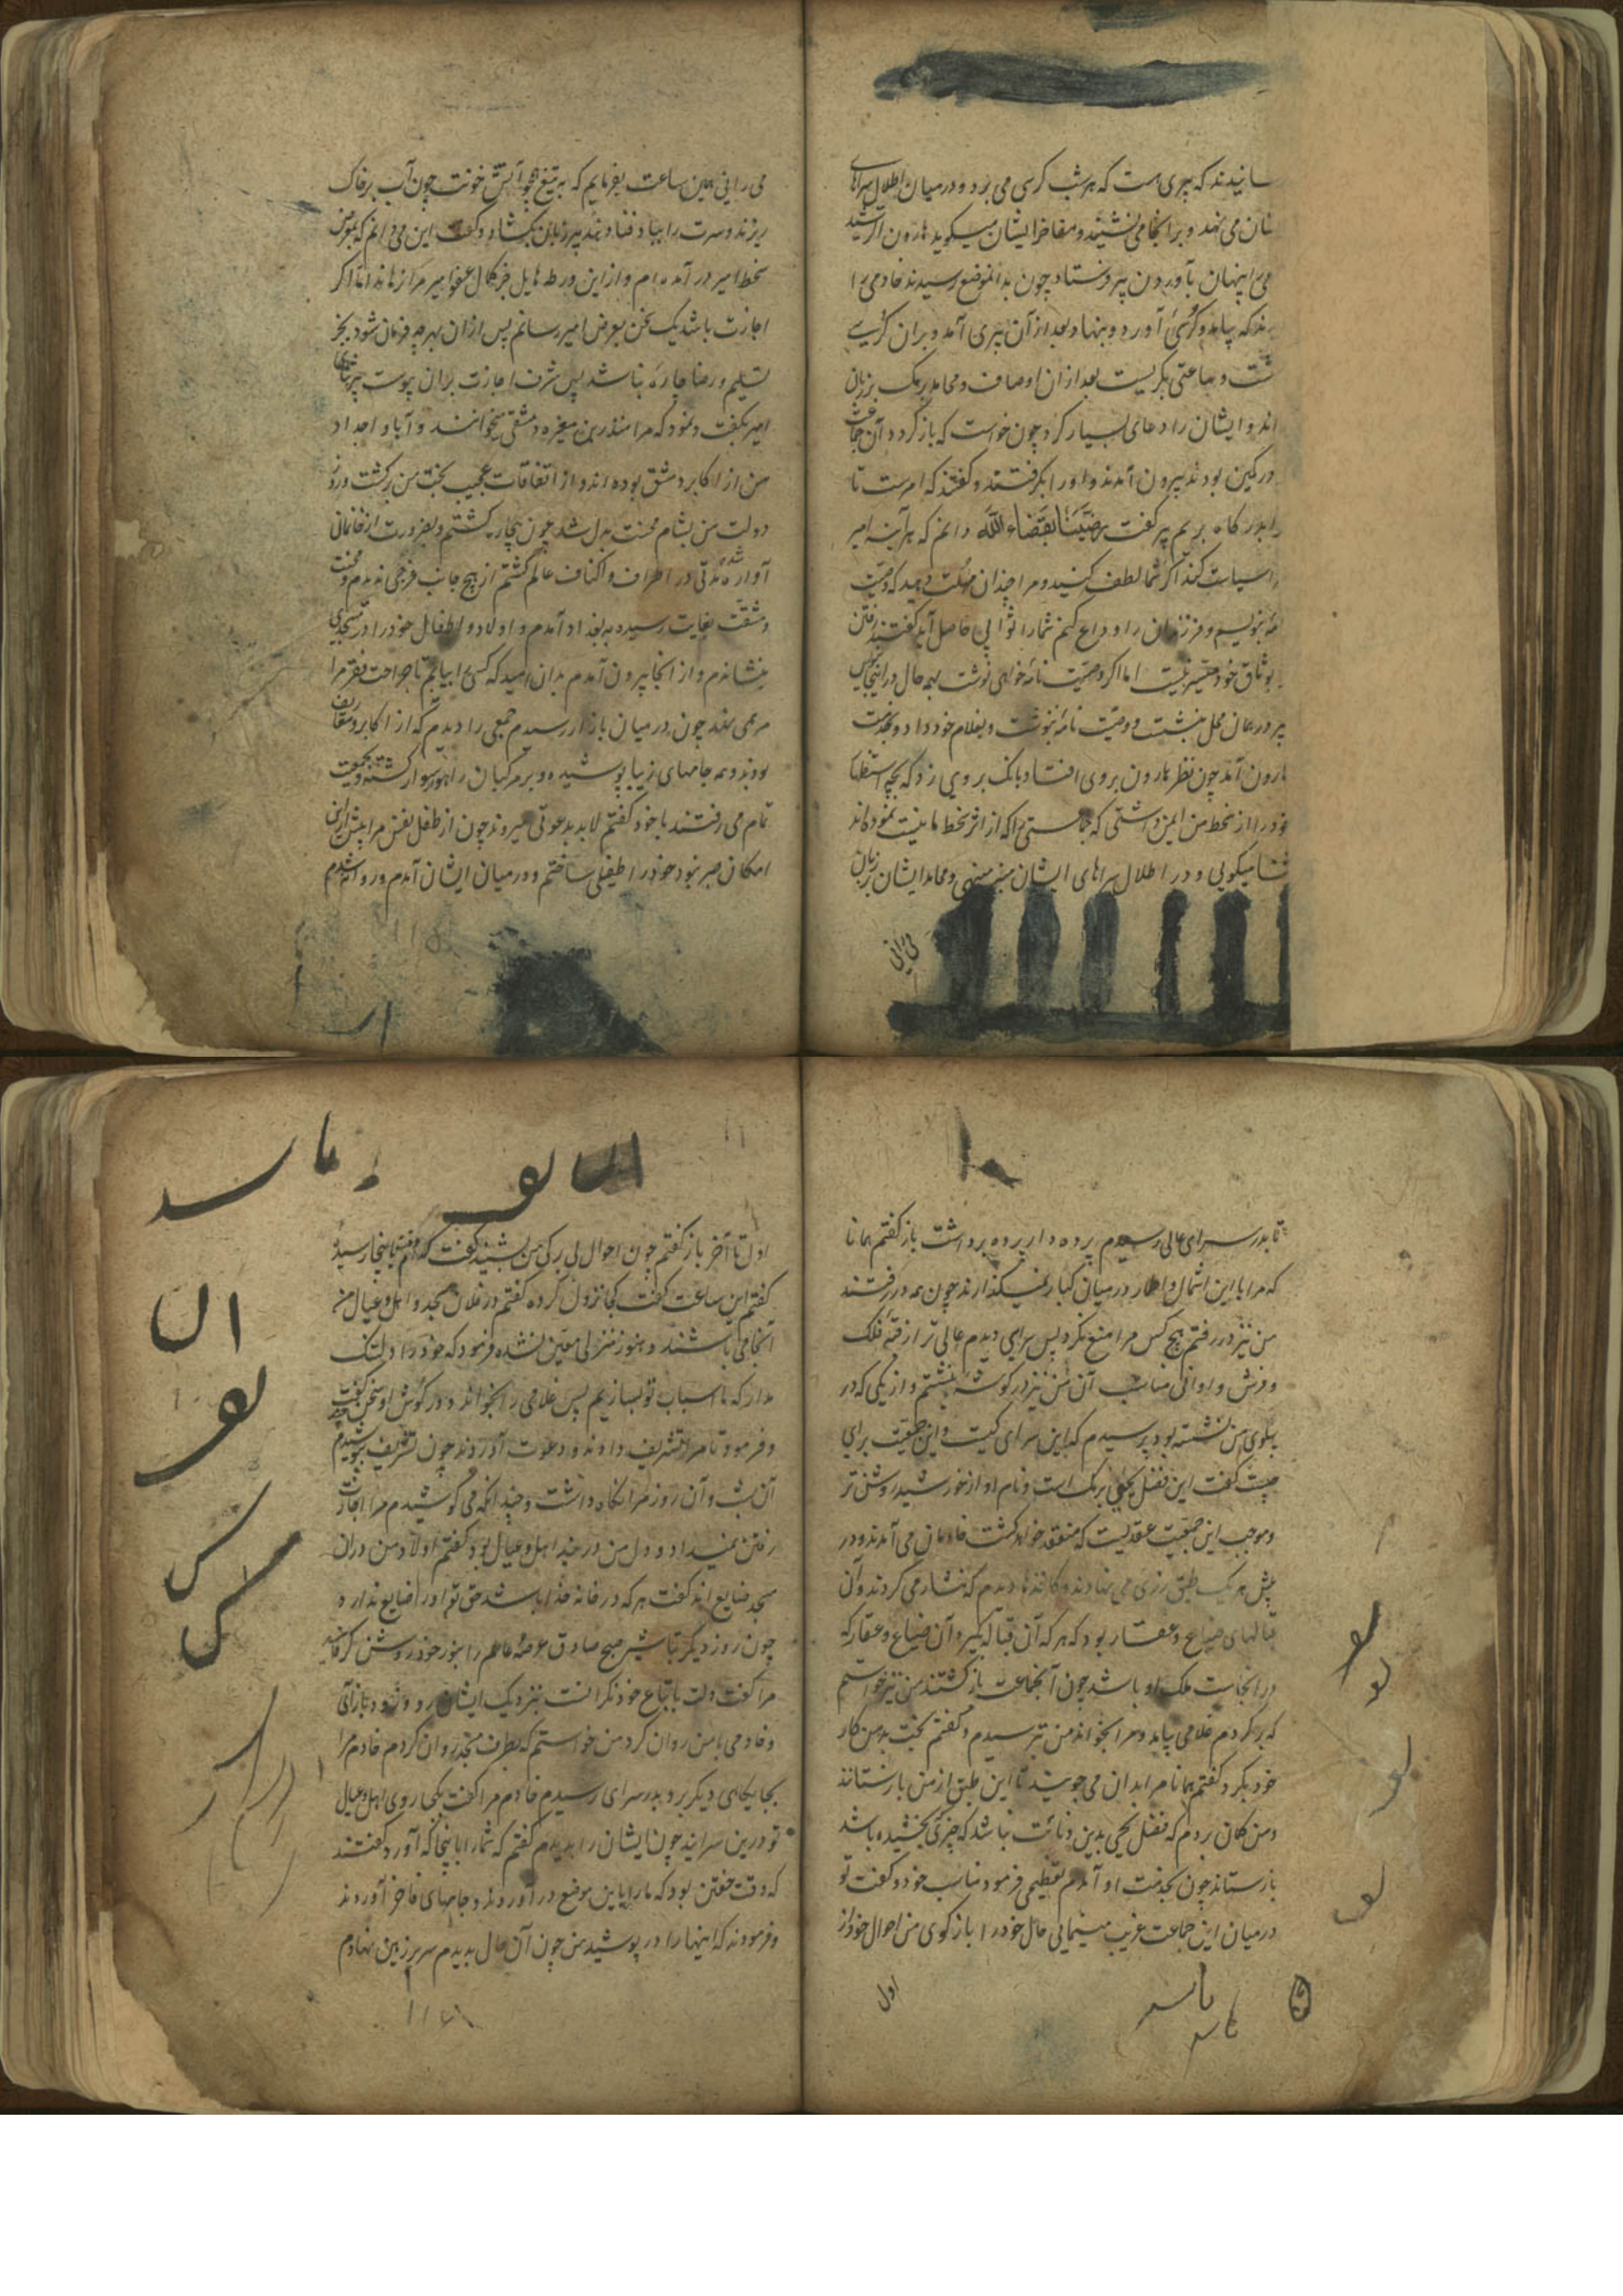 سانیدند که پیری هست که هر شب کرسی می برد و در میان اطلال سراهای
شان می نهد و بر انجا می نشیند و مفاخر ایشان میکوید هارون الرشید
را پنهان بآوردن پیر فرستاد چون بدانموضع رسیدند خادمی را
دیدند که بیامد و کرسی آورد و بنهاد بعد از آن پیری آمد و بران کرسی
نشست و ساعتی بکریست بعد از ان اوصاف و محامد برمک بر زبان
راند و ایشان را دعای بسیار کرد چون خواست که باز کردد آن جماعت
در کمین بودند بیرون آمدند و او را بکرفتند و کفتند که امرست تا
را بدرکاه بریم پیر کفت رضینا بقضاء الله دانم که هر آینه امیر
سیاست کند اکر شما لطف کنید و مرا چندان مهلت دهید که وصیت
نامه بنویسم و فرزندان را وداع کنم شما را ثوابی حاصل آید کفتند رفتن
بوثاق خود میسر نیست اما اکر وصیت نامه خواهی نوشت بهمه حال در اینجای
پیر در همان محل بنشست و وصیت نامه بنوشت و بغلام خود داد و بخدمت
هارون آمد چون نظر هارون بروی افتاد بانک بر وی زد که بچه استظهار
خود را از سخط من ایمن داشتی که جماعتی را که از اثر سخط ما نیست نموده اند
ثنا میکویی و در اطلال سراهای ایشان منبر مینهی و محامد ایشان بر زبان
می رانی
می رانی همین ساعت بفرمایم که بر تیغ چو آتش خونت چون آب بر خاک
ریزند و سرت را بباد فنا دهند پیر زبان بکشاد و کفت این می دانم که بموضع
سخط امیر در آمده ام و از این ورطه هایل جز کمال عفو امیر مرا نرهاند اما اکر
اجازت باشد یک سخن بعرض امیر رسانم پس از ان بهر چه فرمان شود بجز
تسلیم و رضا چاره نباشد پس شرف اجازت بران پیوست پیر ثنای
امیر بکفت و نمود که مرا منذر بن مغیره دمشقی میخوانند و آبا و اجداد
من از اکابر دمشق بوده اند و از اتفاقات عجیب بخت من برکشت و روز
دولت من بشام محنت بدل شد چون بیچاره کشتم و بضرورت از خانمانی
آواره شده مدتی در اطراف و اکناف عالم کشتم از هیچ جانب فرجی ندیدم و محنت
و مشقت بغایت رسیده به بغداد آمدم و اولاد و اطفال خود را در مسجدی
بنشاندم و از انجا بیرون آمدم بدان امید که کسی را بیابم تا جراحت فقر مرا
مرهمی نهد چون در میان بازار رسیدم جمعی را دیدم که از اکابر و معارف
بودند و همه جامهای زیبا پوشیده و بر مرکبان راهوار سوار کشته و بجمعیت
تمام می رفتند با خود کفتم لابد بدعوتی میروند چون از طفل نفس مرا بیش ازین
امکان صبر نبود خود را طفیلی ساختم و در میان ایشان آمدم و روانه شدم
تا بدر سرای عالی رسیدم پرده دار پرده برداشت باز کفتم همانا
که مرا با این اشمال و اطمار در میان کبار نمیکذارند چون همه در رفتند
من نیز در رفتم هیچ کس مرا منع نکرد پس سرای دیدم عالی تر از قبه فلک
و فرش و اوانی مناسب آن من نیز در کوشه بنشستم و از یکی که در
پهلوی من نشسته بود پرسیدم که این سرای کیست و این جمعیت برای
چیست کفت این فضل یحیی برمک است و نام او از خورشید روشن تر
و موجب این جمعیت عقدیست که منعقد خواهد کشت خادمان می آمدند و در
پیش هر یک طبق زری می نهادند و کاغذها دیدم که نثار می کردند و آن
قبالهای ضیاع و عقار بود که هر که آن قباله بکیرد آن ضیاع و عقار که
در انجاست ملک او باشد چون آنجماعت بازکشتند من نیز خواستم
که برکردم غلامی بیامد و مرا بخواند من بترسیدم و کفتم بخت بد من کار
خود بکرد کفتم همانا مرا بدان می جویند تا این طبق از من بازستانند
و من کمان بردم که فضل یحیی بدین دنائت نباشد که چیزی بخشیده باشد
بازستاند چون بخدمت او آمدم تعظیمی فرمود مناسب خود و کفت تو
در میان این جماعت غریب مینمایی حال خود را باز کوی من احوال خود از
اول
اول تا آخر باز کفتم چون احوال بی برکی من بشنید کفت که اینجا رسیدی
کفتم این ساعت کفت کجا نزول کرده کفتم در فلان مسجد و اهل و عیال من
آنجا می باشند و هنوز منزلی معین نشده فرمود که خود را دلتنک
مدار که ما اسباب تو بسازیم پس غلامی را بخواند و در کوش او سخن بکفت
و فرمود تا مرا تشریف دادند و دعوت آوردند چون تشریف بپوشیدم
آن شب و آن روز مرا نکاه داشت و چندانکه می کوشیدم مرا اجازت
رفتن نمیداد و دل من در بند اهل و عیال بود کفتم اولاد من دران
مسجد ضایع اند کفت هر که در خانه خدا باشد حق تع او را ضایع نذارد
چون روز دیکر تباشیر صبح صادق عرصه عالم را بنور خود روشن کرد
مرا کفت دلت باتباع خود نکرانست بنزدیک ایشان رو و زود بازآی
و خادمی با من روان کرد من خواستم که بطرف مسجد روان کردم خادم مرا
بجایکاهی دیکر برد بدر سرای رسیدم خادم مرا کفت اهل و عیال
تو درین سرایند چون ایشان را بدیدم کفتم که شما را باینجا که آورد کفتند
که وقت خفتن بود که ما را باین موضع در آوردند و جامهای فاخر آوردند
و فرمودند که اینها را در پوشید من چون آن حال بدیدم سر بر زمین نهادم